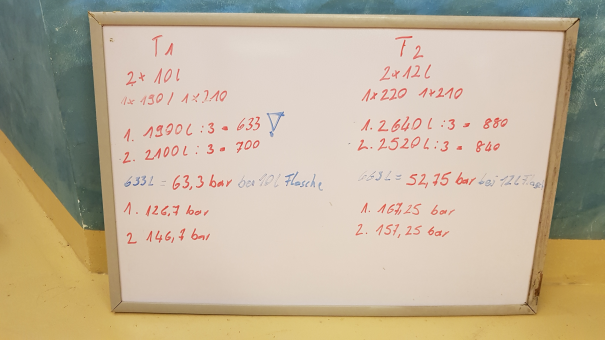 T1
2 x 10l
1 x 190l 1 x 210
1. 1900l : 3 = 633
2. 2100l : 3 = 700
633L = 63,3 bar bei 10L Flasche
1. 126,7 bar
2 146,7 bar
T2
2 x 12l
1x220 1x210
1. 2640l : 3 = 880
2. 2520l : 3 = 840
633L = 52,75 bar bei 12L Flasche
1. 167,25 bar
2. 157,25 bar